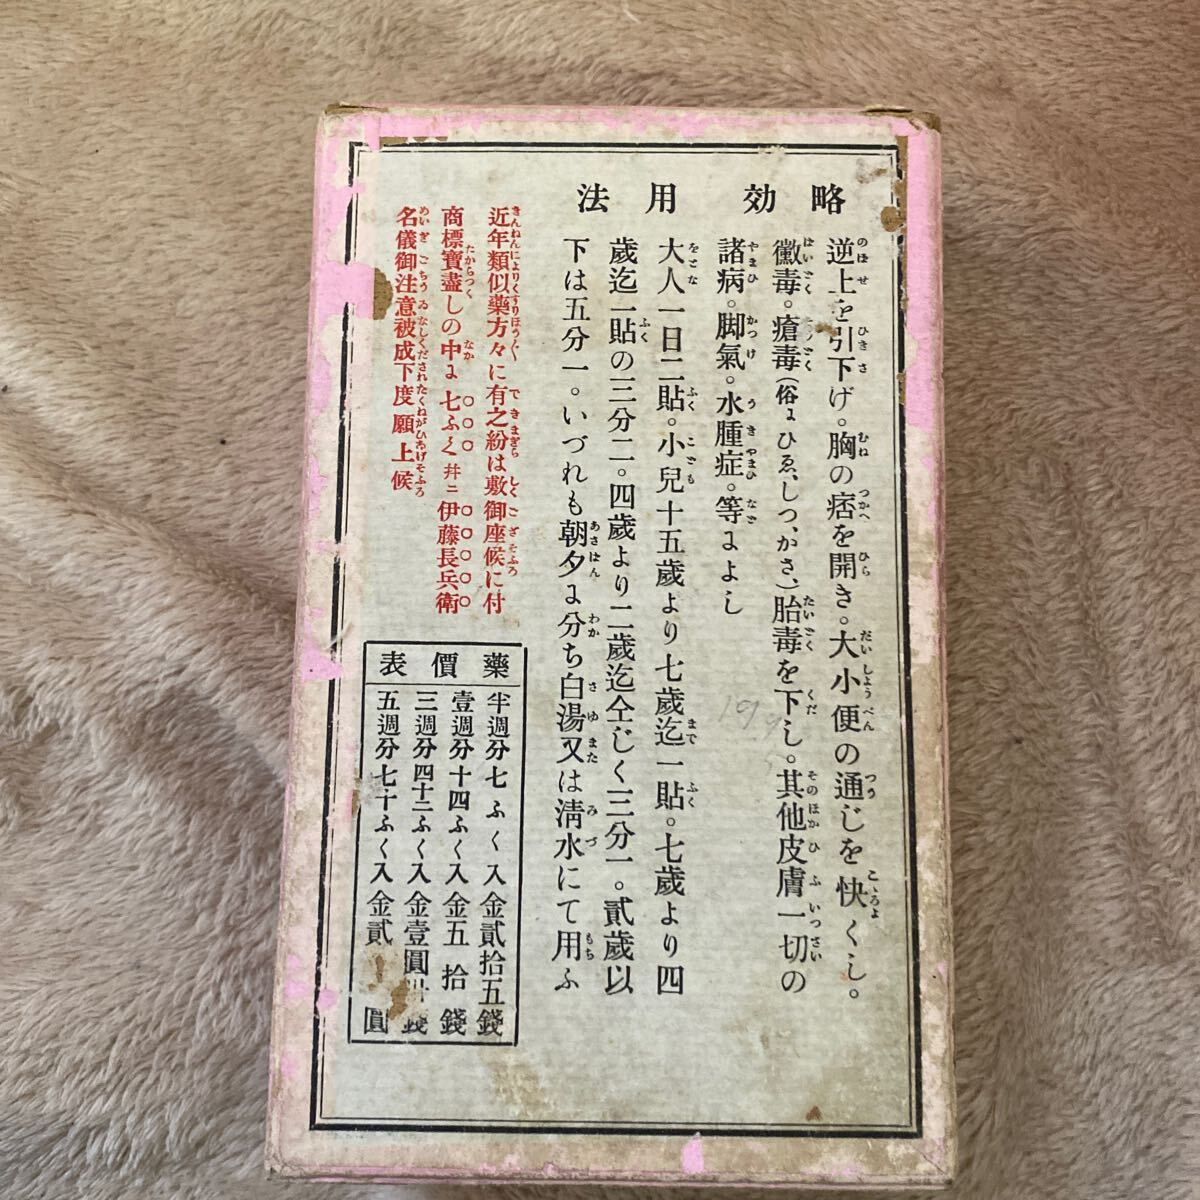 略効
逆上を引下げ。胸の痞を開き。大小便の通じを快くし。
黴毒。瘡毒(俗にひゑ、しつ、かさ、)胎毒を下し。其他皮膚一切の
諸病。脚氣。水腫症。等によし
用法
大人一日二貼。小兒十五歲より七歲迄一貼。七歲より四
歲迄一貼の三分二。四歲より二歲迄仝じく三分一。貳歲以
下は五分一。いづれも朝夕に分ち白湯又は淸水にて用ふ
近年類似藥方々に有之紛は敷御座候に付
商標寶盡しの中に七ふく幷ニ伊藤長兵衛
名儀御注意被成下度願上候
藥價表
半週分七ふく入金貳拾五錢
壹週分十四ふく入金五拾錢
三週分四十二ふく入金壹圓 錢
五週分七十ふく入金貳 圓